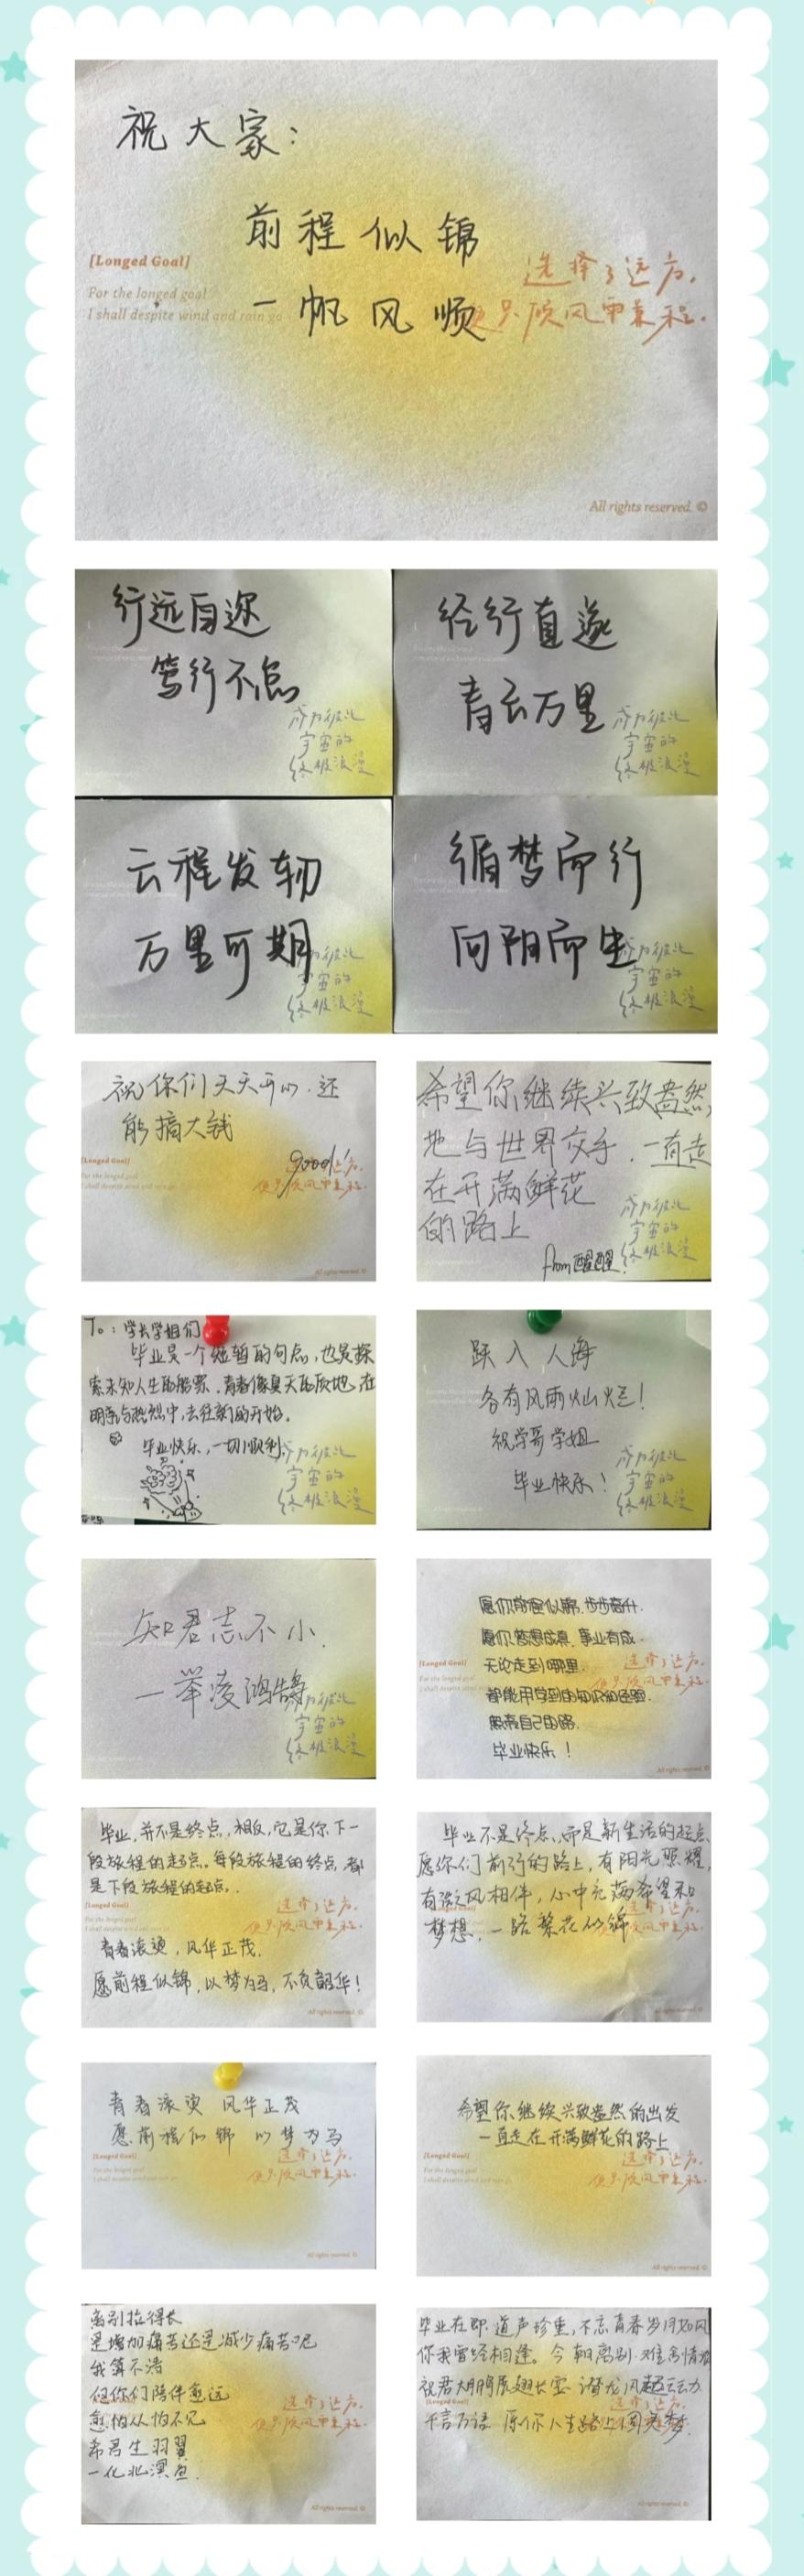 祝大家：
前程似锦
[Longed Goal]
选择了远方，
For the longed goal
I shall despite wind and rain go
一帆风顺
便只顾风雨兼程.
All rights reserved. ©
行远自迩
笃行不怠
成为彼此
宇宙的
终极浪漫
径行直遂
青云万里
成为彼此
宇宙的
终极浪漫
云程发轫
万里可期
成为彼此
宇宙的
终极浪漫
循梦而行
向阳而生
成为彼此
宇宙的
终极浪漫
祝你们天天开心.还
能搞大钱
good!
[Longed Goal]
选择了远方，
For the longed goal
便只顾风雨兼程.
All rights reserved. ©
希望你继续兴致盎然,
地与世界交手.一直走
在开满鲜花
的路上
from 醒醒.
成为彼此
宇宙的
终极浪漫
To：学长学姐们
毕业是一个短暂的句点,也是探
索未知人生的船票.青春像夏天的质地,在
明亮与热烈中,去往新的开始。
毕业快乐,一切顺利.
成为彼此
宇宙的
终极浪漫
跃入人海
各有风雨灿烂！
祝学哥学姐
毕业快乐！
成为彼此
宇宙的
终极浪漫
知君志不小.
一举凌鸿鹄
成为彼此
宇宙的
终极浪漫
愿你前程似锦.步步高升.
愿你梦想成真.事业有成.
无论走到哪里.
都能用学到的知识和经验.
照亮自己的路.
毕业快乐！
[Longed Goal]
选择了远方，
For the longed goal
便只顾风雨兼程.
All rights reserved. ©
毕业,并不是终点,相反,它是你下一
段旅程的起点.每段旅程的终点,都
是下段旅程的起点.
[Longed Goal]
选择了远方，
For the longed goal
便只顾风雨兼程.
青春滚烫,风华正茂.
愿前程似锦,以梦为马,不负韶华！
All rights reserved. ©
毕业不是终点,而是新生活的起点
愿你们前行的路上,有阳光照耀,
有微风相伴,心中充满希望和
梦想,一路繁花似锦
All rights reserved. ©
青春滚烫 风华正茂
愿前程似锦 以梦为马
[Longed Goal]
选择了远方，
For the longed goal
便只顾风雨兼程.
All rights reserved. ©
希望你继续兴致盎然的出发
一直走在开满鲜花的路上
[Longed Goal]
选择了远方，
For the longed goal
便只顾风雨兼程.
All rights reserved. ©
离别拉得长
是增加痛苦还是减少痛苦呢
我算不清
但你们陪伴愈远
愈怕从怕不见
希君生羽翼
一化北溟鱼.
选择了远方，
便只顾风雨兼程.
All rights reserved. ©
毕业在即.道声珍重,不忘青春岁月如风
你我曾经相逢。今朝离别.难舍情
祝君大鹏展翅长空.潜龙风起云动
千言万语.愿你人生路上圆美梦.
All rights reserved. ©